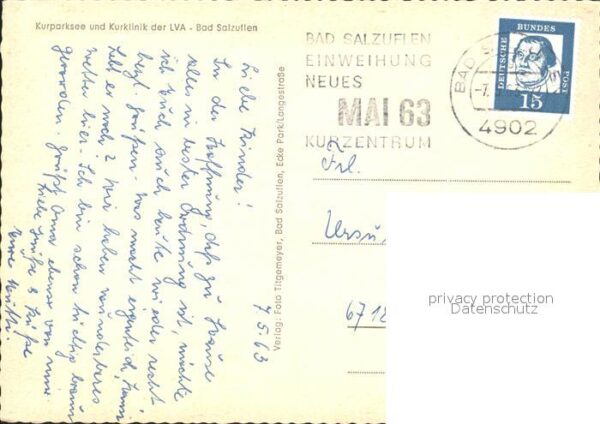 Kurparksee und Kurklinik der LVA - Bad Salzuflen
BAD SALZUFLEN
EINWEIHUNG
NEUES
MAI 63
KURZENTRUM
BAD S
-7.
4902
DEUTSCHE BUNDES POST
15
Frl.
Ursu
67 18
privacy protection
Datenschutz
Verlag: Foto Titgemeyer, Bad Salzuflen, Ecke Park/Langestraße
7.5.63
Liebe Kinder!
In der Hoffnung, daß zu Hause
alles in bester Ordnung ist, möchte
ich Euch auch heute wieder recht
herzl. grüßen. Was macht eigentlich
Lebt er noch? Wir haben wunderbares
Wetter hier. Ich bin schon tüchtig braun
geworden. Grüßt Oma ebenso von mir.
Liebe Grüße & Küsse
Eure Mutti.